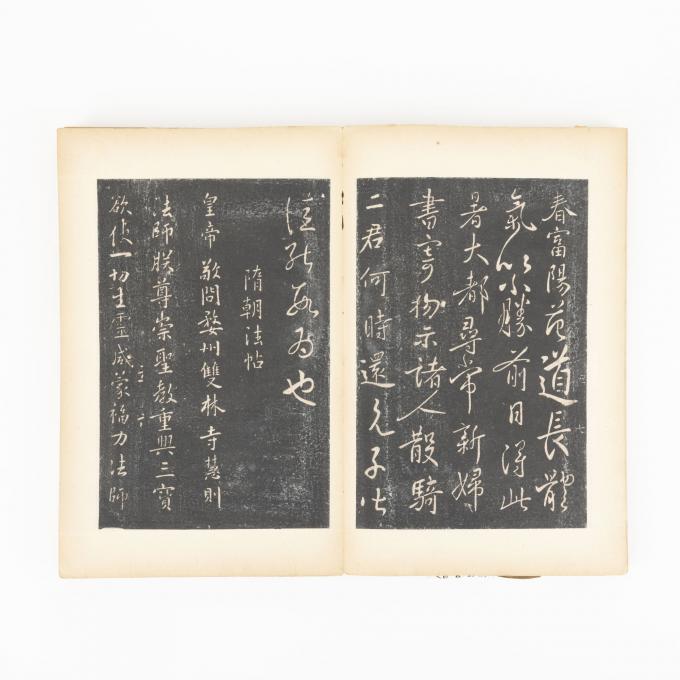 春富陽范道長體
氣勝前日得此
暑大都尋常新婦
書寄物示諸人散騎
二君何時還兄子
為也
隋朝法帖
皇帝敬問婺州雙林寺慧則
法師朕尊崇聖教重興三寶
欲使一切生靈咸蒙福力法師